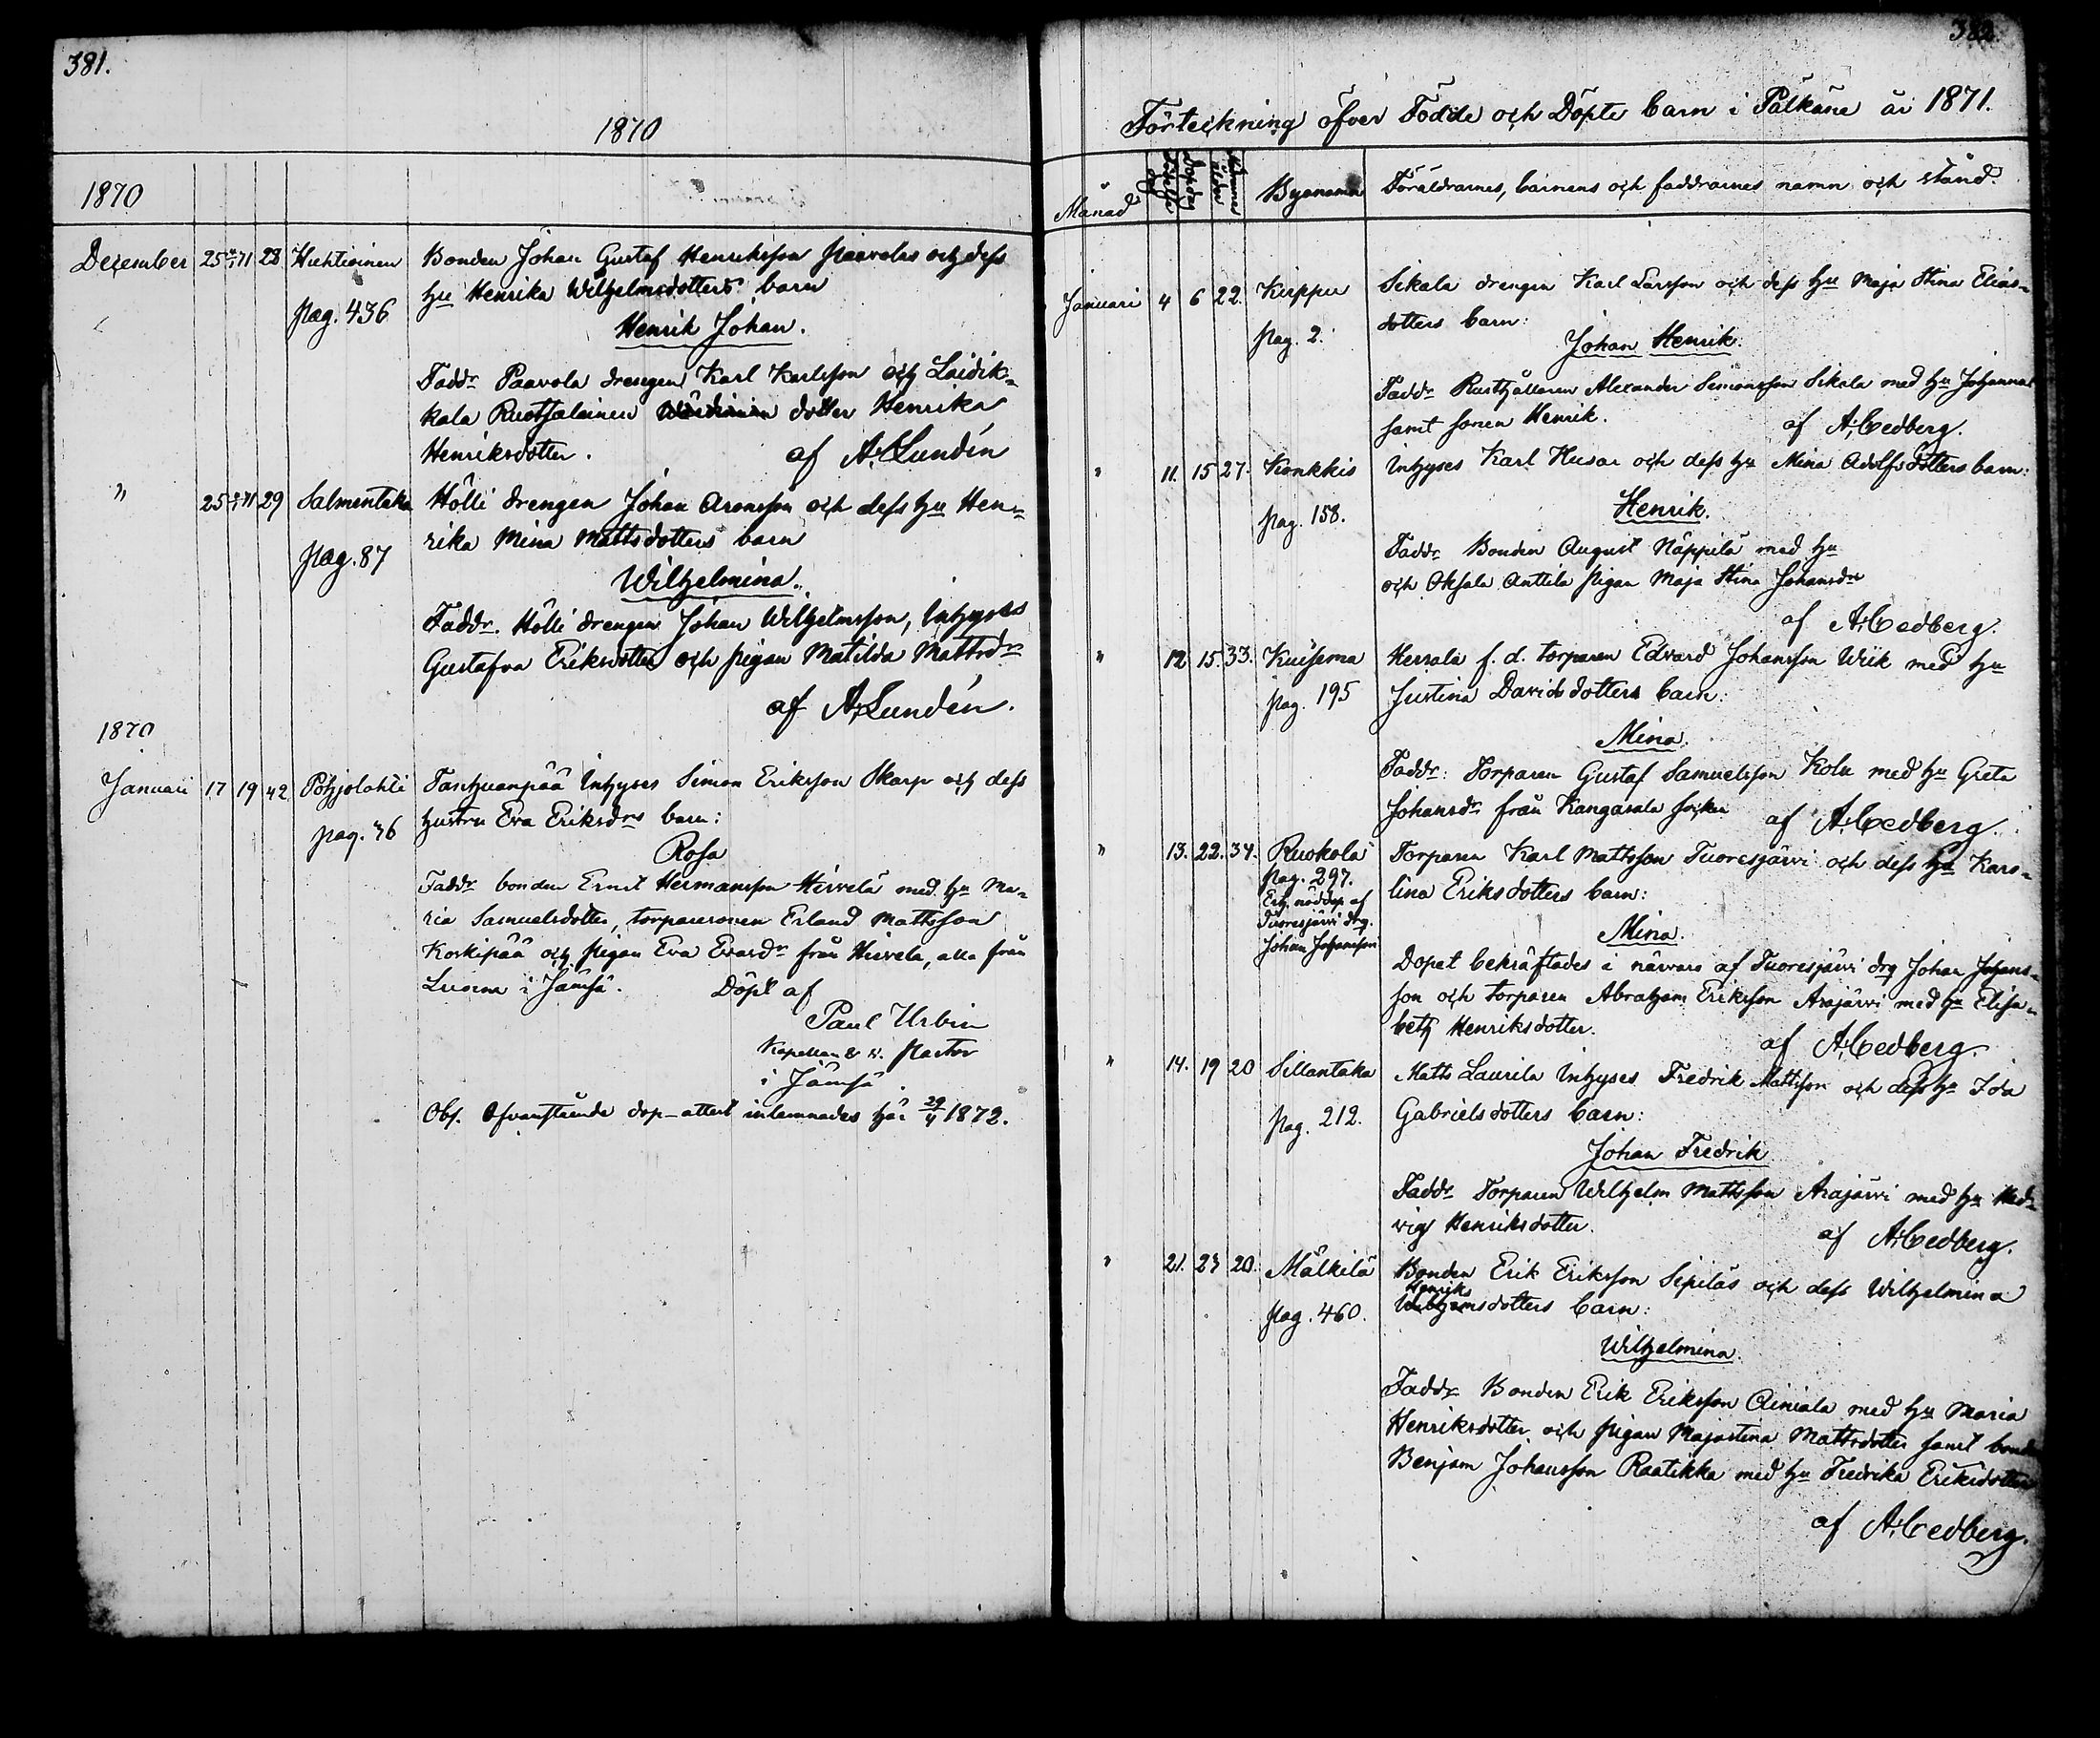 381.
1870
1870
December 25 71 28 Huhtioinen Bonden Johan Gustaf Henriksson Paavolas och dess
pag. 436 hu Henrika Wilhelmsdotters barn
Henrik Johan.
Faddr Paavola drengen Karl Karlsson och Laidik-
kala Rusthålaren dotter Henrika
Henriksdotter. af A. Lundén
" 25 71 29 Salmentaka Hölli drengen Johan Aronsson och dess hu Hen-
rika Mina Mattsdotters barn
pag. 87
Wilhelmina.
Faddr. Hölli drengen Johan Wilhelmsson, Inhyses
Gustafva Eriksdotter och pigan Matilda Mattsdr
af A. Lundén.
1870
Januari 17 19 42 Pohjolahti Tanhuanpää Inhyses Simon Eriksson Skarp och dess
pag. 46 hustru Eva Eriksdrs barn:
Rosa
Faddr bonden Ernst Hermansson Hirvelä med hu Ma-
ria Samuelsdotter, torparesonen Erland Mattsson
Koskipää och pigan Eva Evasdr från Hirvela, alla från
i Jämsä. Döpt af
Paul Urbin
Kapellan & v. Pastor
i Jämsä
Obs. Ofvanstående dop-attest inlemnades här 29/4 1872.
382
Förteckning öfver Födde och Döpte barn i Pälkäne år 1871.
Månad Födelsedag Dopdag Moderns ålder Bynamn Föräldrarnes, barnens och faddrarnes namn och stånd.
Januari 4 6 22. Kuppu Sikala drengen Karl Larsson och dess hu Maja Stina Elias-
pag. 2. dotters barn:
Johan Henrik.
Faddr Rusthållaren Alexander Simonsson Sikala med hu Johanna
samt sonen Henrik. af A. Cedberg.
" 11. 15 27. Konkkis Inhyses Karl Husar och dess hu Mina Adolfsdotters barn:
pag. 158. Henrik.
Faddr Bonden August Näppilä med hu
och Oksala Anttila pigan Maja Stina Johansdr
af A. Cedberg.
" 12 15. 33. Kuisema Kersala f. d. torparen Edvard Johansson Wiik med hu
pag. 195 Justina Davidsdotters barn:
Mina.
Faddr: Torparen Gustaf Samuelsson Kolu med hu Greta
Johansdr från Kangasala socken af A. Cedberg.
" 13. 22. 34. Ruokola Torparen Karl Mattsson Tuoresjärvi och dess hu Karo-
pag. 297. lina Eriksdotters barn:
Erh. nöddop af
Tuoresjärvi drg.
Johan Johansson
Mina.
Dopet bekräftades i närvaro af Tuoresjärvi drg Johan Johans-
son och torparen Abraham Eriksson Arajärvi med hu Elisa-
beth Henriksdotter. af A. Cedberg.
" 14. 19 20 Sillantaka Matts Laurila Inhyses Fredrik Mattsson och dess hu Ida
pag. 212. Gabrielsdotters barn:
Johan Fredrik
Faddr Torparen Wilhelm Mattsson Arajärvi med hu Hed-
vig Henriksdotter. af A. Cedberg.
" 21. 23 20. Mälkilä Bonden Erik Eriksson Sepiläs och dess Wilhelmina
Henrik
pag. 460. Wilhelmsdotters barn:
Wilhelmina.
Faddr Bonden Erik Eriksson Äiniälä med hu Maria
Henriksdotter och pigan Majastina Mattsdotter samt bonden
Benjam Johansson Raatikka med hu Fredrika Eriksdotter
af A. Cedberg.